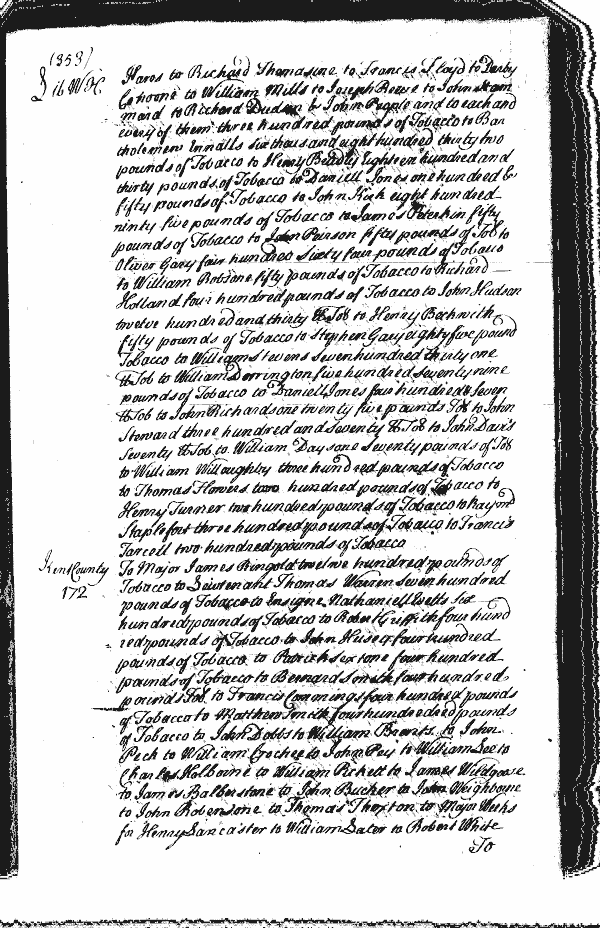 (353)
Lib W H C
Hares to Richard Thomasine to Francis Lloyd to Derby
Cohoone to William Mills to Joseph Rowe to John Ham
maid to Richard Dudson & John People and to each and
every of them three hundred pounds of Tobacco to Bar
tholemew Ennalls six thousand eight hundred thirty two
pounds of Tobacco to Henry Bradly Eighteen hundred and
thirty pounds of Tobacco to Daniell Jones one hundred &
fifty pounds of Tobacco to John Kirk eight hundred
ninty five pounds of Tobacco to James Peterkin fifty
pounds of Tobacco to John Peirson fifty pounds of Tob to
Oliver Gray four hundred Sixty four pounds of Tobacco
to William Robsone fifty pounds of Tobacco to Richard
Holland four hundred pounds of Tobacco to John Hudson
twelve hundred and thirty lb Tob to Henry Beckwith
fifty pounds of Tobacco to Stephen Gary eighty five pound
Tobacco to William Stevens seven hundred thirty one
lb Tob to William Dorrington five hundred seventy nine
pounds of Tobacco to Daniell Jones four hundred & seven
lb Tob to John Richardsone twenty five pounds Tob to John
Steward three hundred and seventy lb Tob to John Davis
Seventy lb Tob to William Daysone Seventy pounds of Tob
to William Willoughby three hundred pounds of Tobacco
to Thomas Flowers two hundred pounds of Tobacco to
Henry Turner two hundred pounds of Tobacco to Raymond
Staplefort three hundred pounds of Tobacco to Francis
Tarcell two hundred pounds of Tobacco
Kent County
172
To Major James Ringold twelve hundred pounds of
Tobacco to Lieutenant Thomas Warren Seven hundred
pounds of Tobacco to Ensigne Nathaniell Evetts Six
hundred pounds of Tobacco to Robert Griffith four hund
red pounds of Tobacco to John Huse four hundred
pounds of Tobacco to Patrick Sextone four hundred
pounds of Tobacco to Bernard Smith four hundred
pounds Tob to Francis Commings four hundred pounds
of Tobacco to Matthew Smith four hundred pounds
of Tobacco to John Dobbs to William Brents to John
Peck to William Crocher to John Pey to William Lee to
Charles Holborne to William Pickett to James Wildgoose
to James Balberstone to John Bucher to John Weighborne
to John Robersone to Thomas Thoxton to Major Weeks
for Henry Lancaster to William Eater to Robert White
To